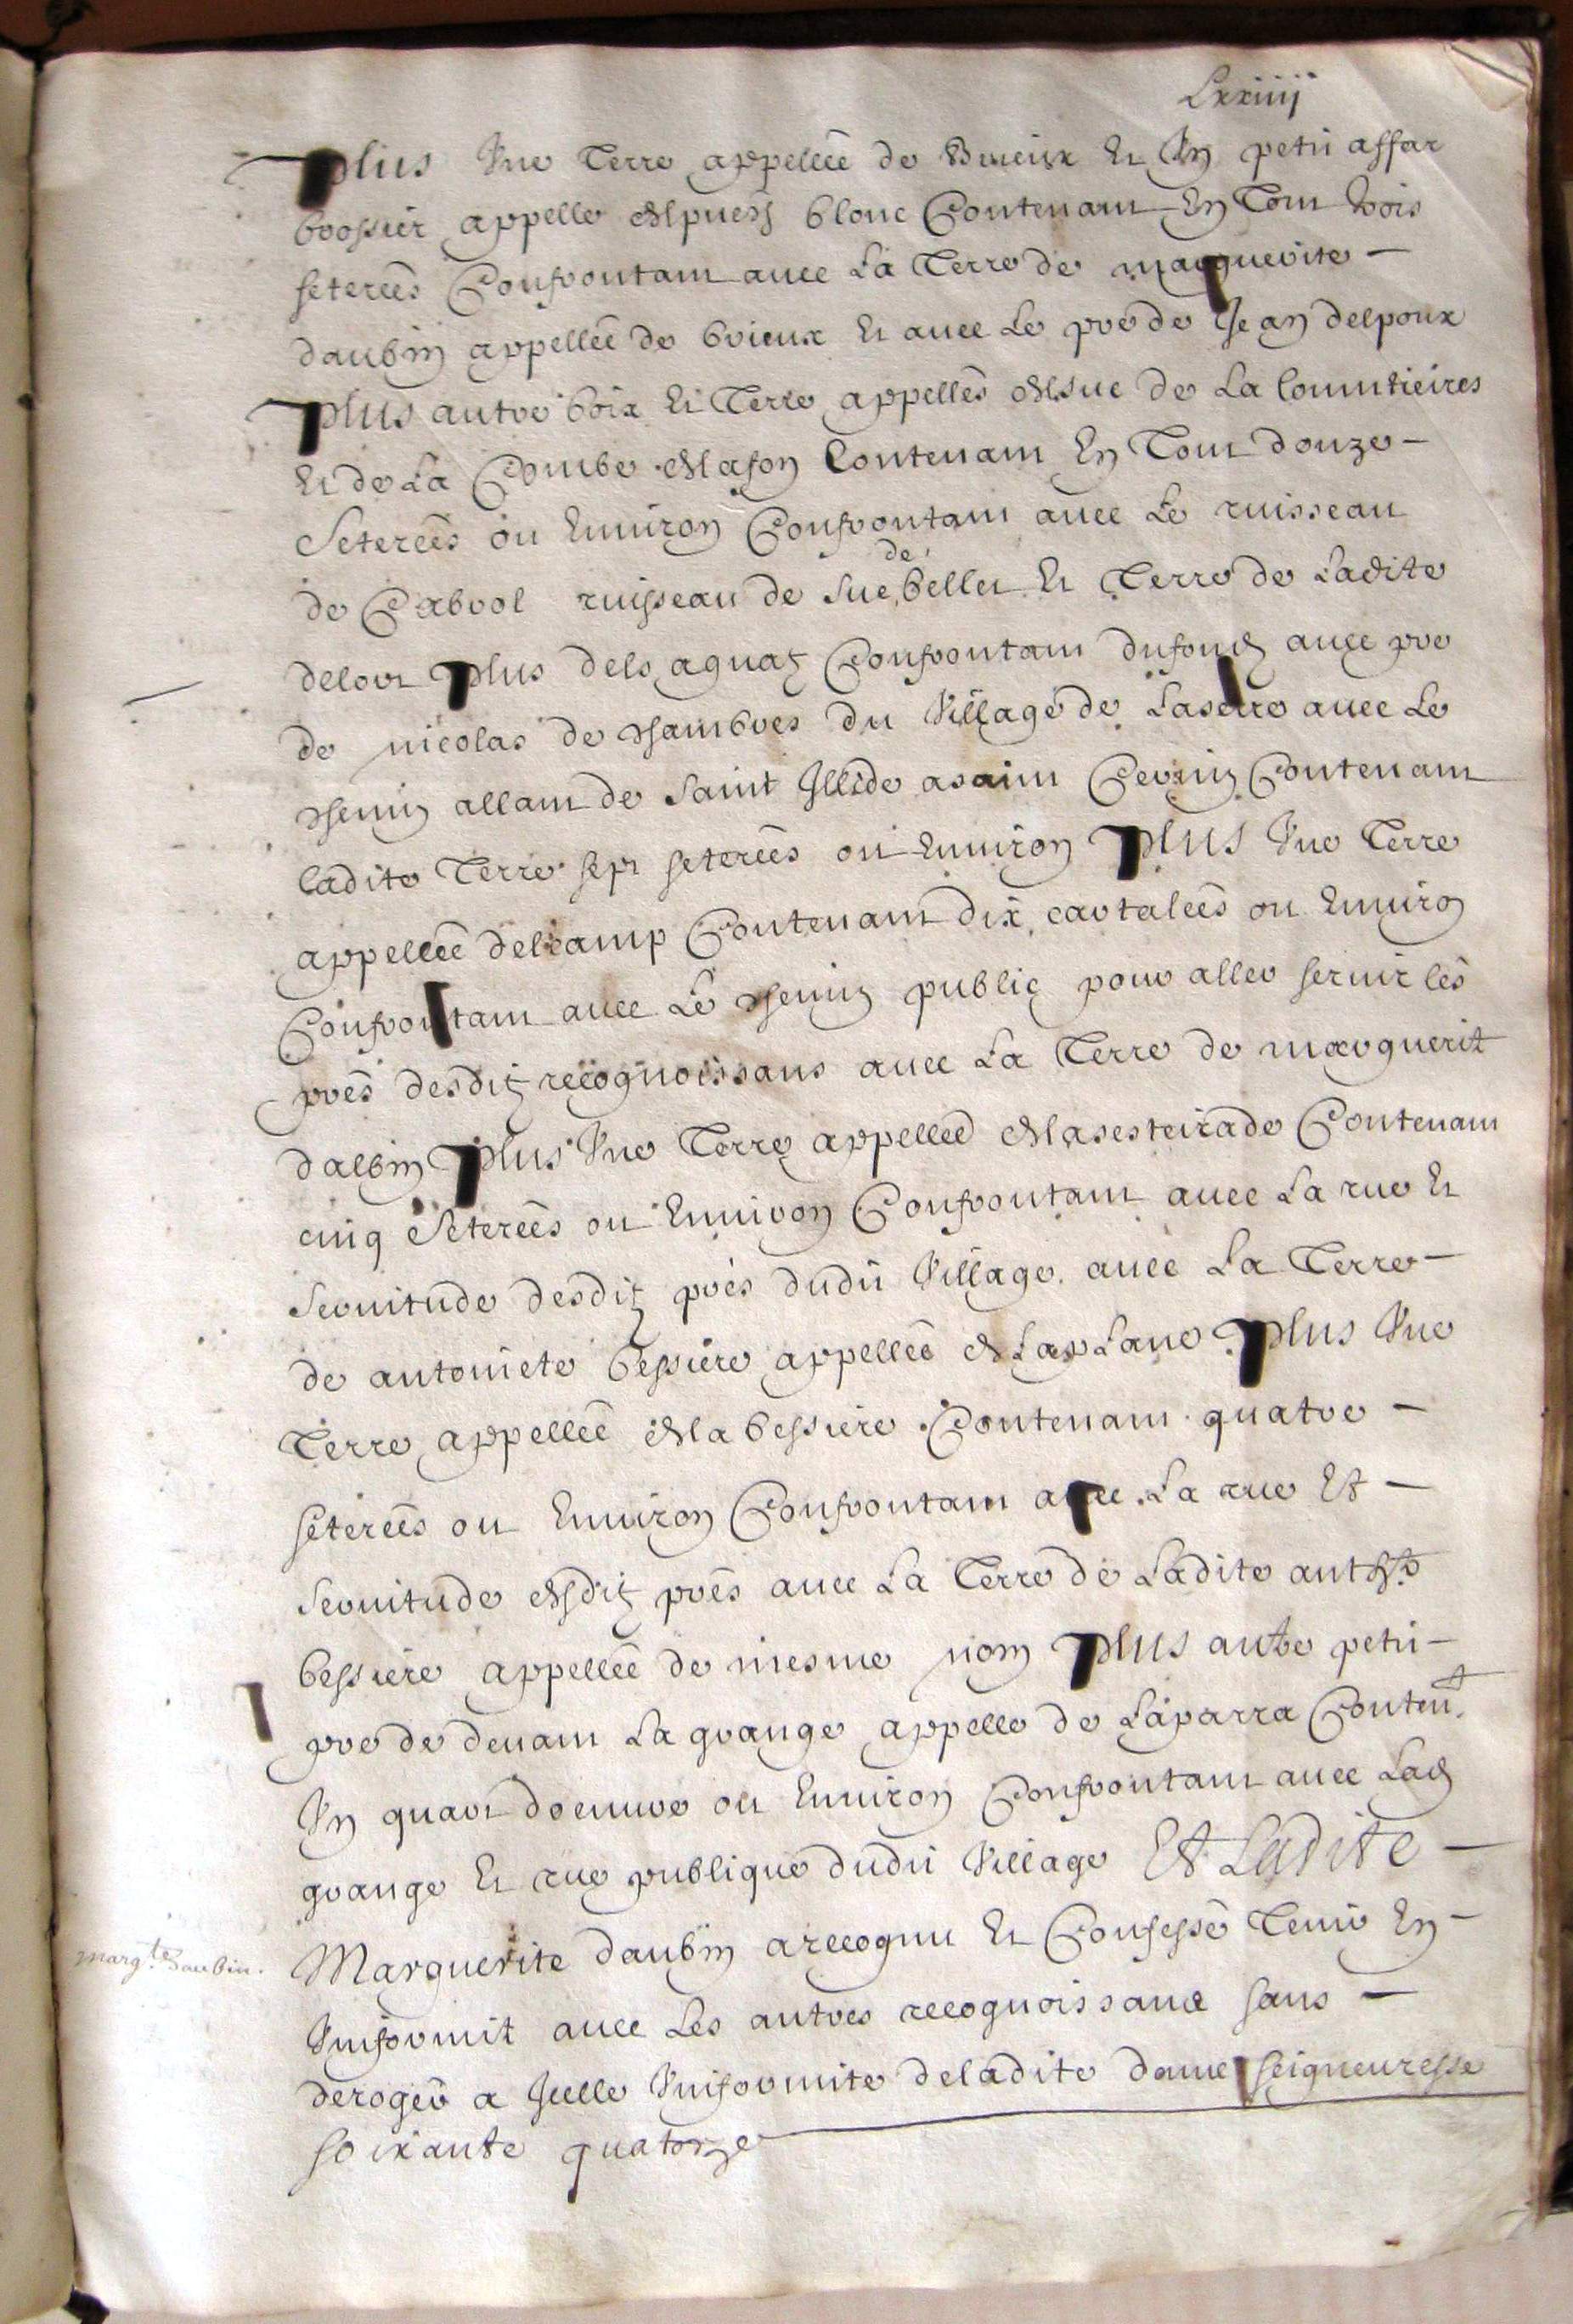 Lxxiiij
Plus Une Terre appellée de Brieux Et Un petit affar
brossier appelle Alpuech blanc Contenant En Tout trois
seterées Confrontant avec La Terre de marguerite
daubin appellée de brieux Et avec Le pré de Jean delpoux
Plus autre boix Et Terre appellés Alsuc de La
Et de La Combe Contenant En Tout douze
Seterées ou Environ Confrontant avec Le ruisseau
de Cabrol ruisseau de suc de bellet Et Terre de Ladite
delort Plus dels aguatz Confrontant dufond avec pre
de nicolas de Chambres du Village de Lascare avec Le
Chemin allant de Saint Illide a saint Cernin Contenant
ladite Terre sept seterées ou Environ Plus Une Terre
appellée delcamp Contenant dix cartalées ou Environ
Confrontant avec Le Chemin public pour aller servir les
prés desditz recognoissans avec La Terre de marguerit
dalbin Plus Une Terre appellée Alasesteirade Contenant
cinq Seterées ou Environ Confrontant avec La rue Et
Servitude desditz prés dudit Village avec La Terre
de antoniete bessiere appellée A Laplane Plus Une
Terre appellée Ala bessiere Contenant quatre
seterées ou Environ Confrontant avec La rue Et
Servitude esditz prés avec La Terre de Ladite
bessiere appellée de mesme nom Plus autre petit
pre de devant La grange appelle de Laparra Conten.t
Un quart doeuvre ou Environ Confrontant avec Lad
grange Et rue publique dudit Village Et Ladite
marg.te Daubin.
Marguerite daubin a recognu Et Confessé Tenir En
Uniformit avec Les autres recognoissance sans
deroger a Icelle Uniformite deladite dame seigneuresse
soixante quatorze